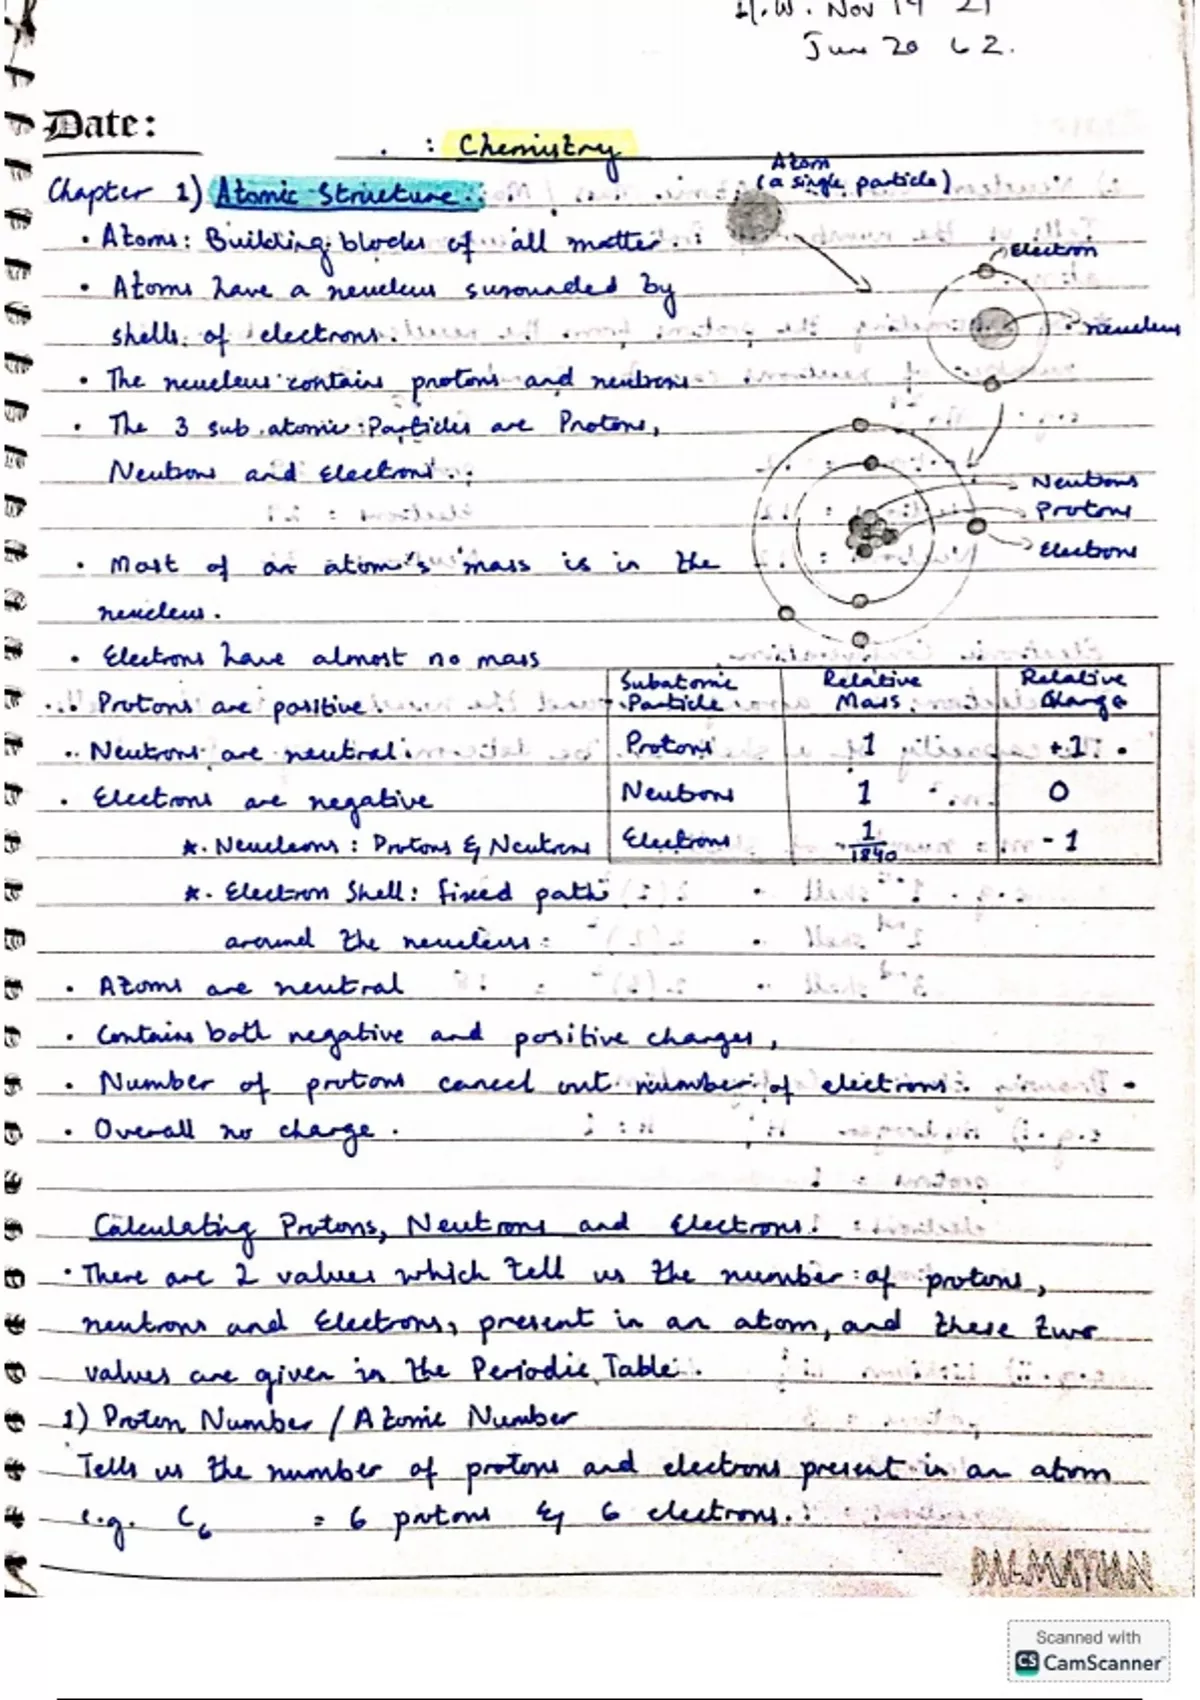 H.W. Nov 19 21
June 20 62.
Date:
: Chemistry
Chapter 1) Atomic Structure:
Atom
(a single particle)
• Atoms: Building blocks of all matter.
Electron
• Atoms have a neucleus surounded by
shells of electrons.
neucleus
• The neucleus contains protons and neutrons
• The 3 sub atomic Particles are Protons,
Neutrons and Electrons.
Neutrons
Protons
Electrons
• Most of an atom's mass is in the
neucleus.
• Electrons have almost no mass
• Protons are positive.
• Neutrons are neutral.
• Electrons are negative
Subatomic Particle Relative Mass Relative Charge
Protons 1 +1
Neutrons 1 0
Electrons 1/1840 -1
*. Neucleons: Protons & Neutrons
*. Electron Shell: fixed path
around the neucleus
• Atoms are neutral
• Contains both negative and positive charges,
• Number of protons cancel out number of electrons.
• Overall no charge.
Calculating Protons, Neutrons and Electrons:
• There are 2 values which tell us the number of protons,
neutrons and Electrons, present in an atom, and these two
values are given in the Periodic Table.
1) Proton Number / Atomic Number
Tells us the number of protons and electrons present in an atom
e.g. C6 = 6 protons & 6 electrons.
DALMATIAN
Scanned with
CS CamScanner